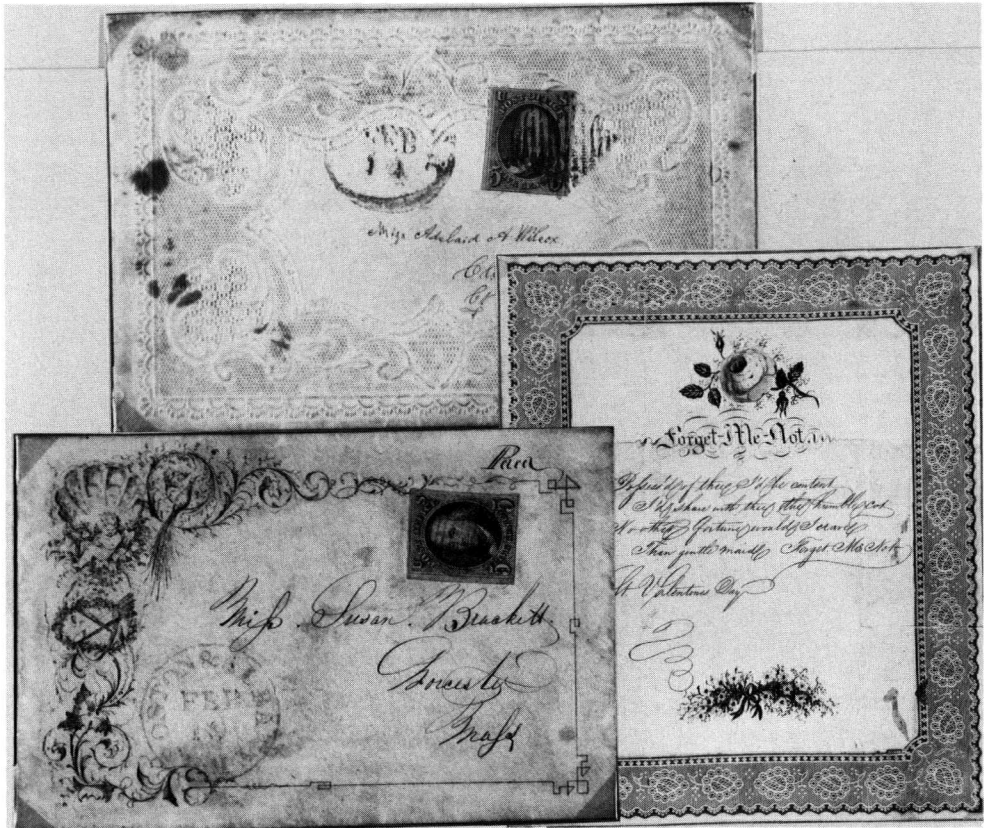 FEB
14
Miss Adelaid A Wilcox.
Ct
Forget-Me-Not.
I'd be content
I'd share with thee the humble cot
No other fortune would I crave
Than gentle maid Forget Me Not
St Valentines Day
Paid
Miss. Susan. Brackett.
Worcester
Mass
OSTON & ALBA
FEB